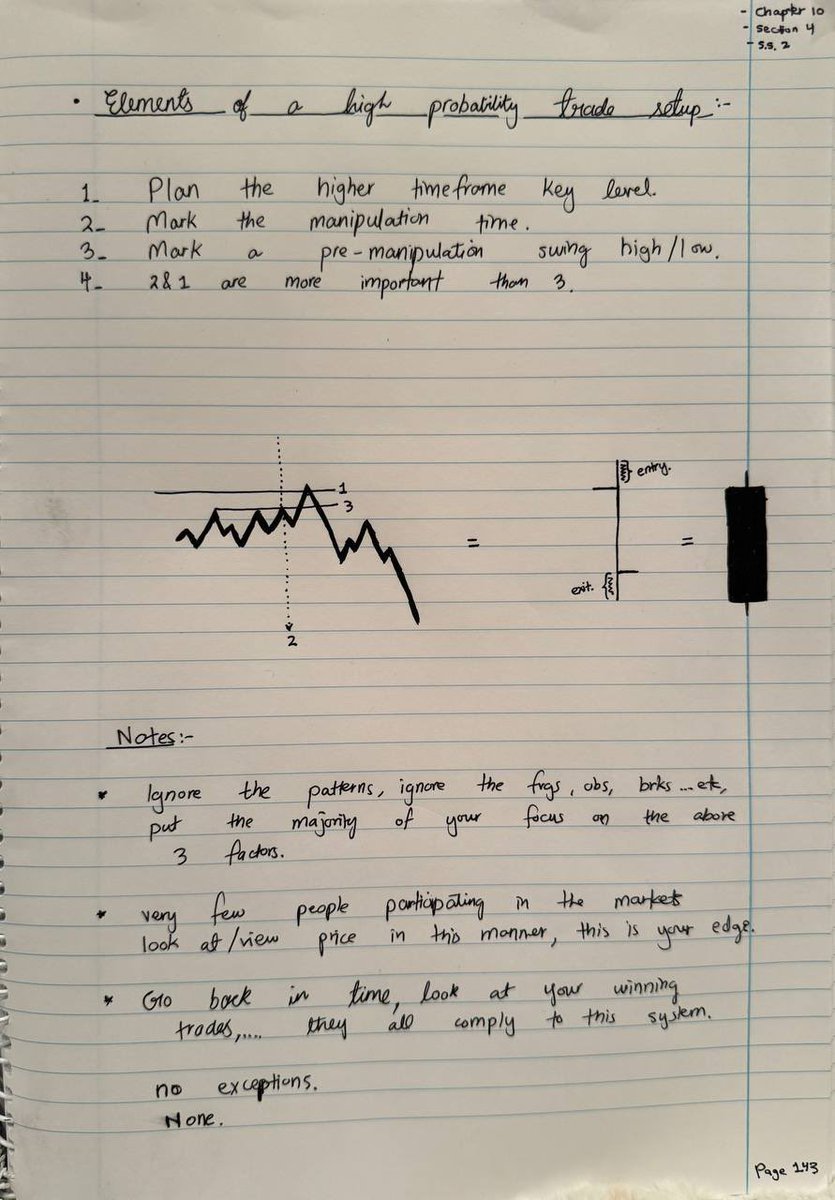 - Chapter 10
- Section 4
- S.S. 2
• Elements of a high probability trade setup:-
1- Plan the higher timeframe key level.
2- Mark the manipulation time.
3- Mark a pre-manipulation swing high/low.
4- 2&1 are more important than 3.
1
3
2
=
entry.
exit.
=
Notes:-
* Ignore the patterns, ignore the fvgs, obs, brks...etc,
put the majority of your focus on the above
3 factors.
* very few people participating in the markets
look at/view price in this manner, this is your edge.
* Go back in time, look at your winning
trades,.... they all comply to this system.
no exceptions.
None.
Page 143